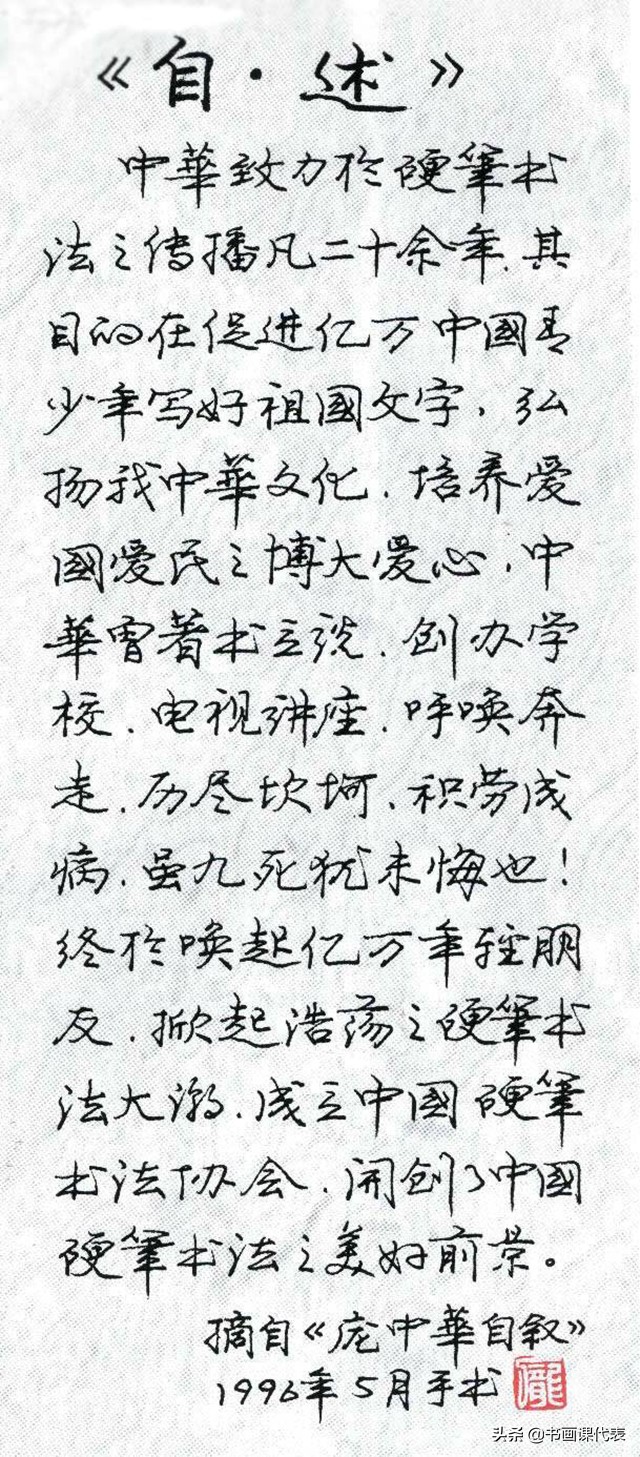 《自·述》
中華致力於硬筆书
法之传播凡二十余年、其
目的在促进亿万中國青
少年写好祖國文字、弘
扬我中華文化、培养爱
國爱民之博大爱心、中
華曾著书立说、创办学
校、电视讲座、呼唤奔
走、历尽坎坷、积劳成
病、虽九死犹未悔也！
终於唤起亿万年轻朋
友、掀起浩荡之硬筆书
法大潮、成立中國硬筆
书法协会、开创了中國
硬筆书法之美好前景。
摘自《庞中華自叙》
1996年5月手书
龐
头条@书画课代表